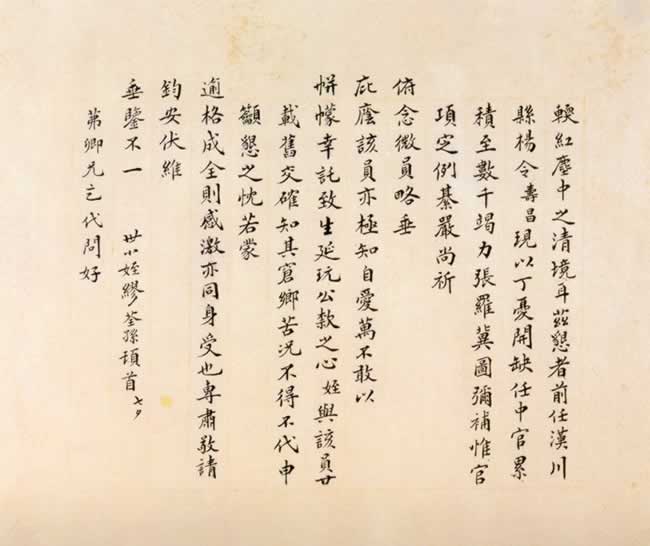 輭紅塵中之清境耳茲懇者前任漢川
縣楊令壽昌現以丁憂開缺任中官累
積至數千竭力張羅冀圖彌補惟官
項定例綦嚴尚祈
俯念微員略垂
庇廕該員亦極知自愛萬不敢以
帡幪幸託致生延玩公款之心姪與該員廿
載舊交確知其窘鄉苦況不得不代申
籲懇之忱若蒙
逾格成全則感激亦同身受也專肅敬請
鈞安伏維
垂鑒不一 世小姪繆荃孫頓首 七夕
茀卿兄乞代問好